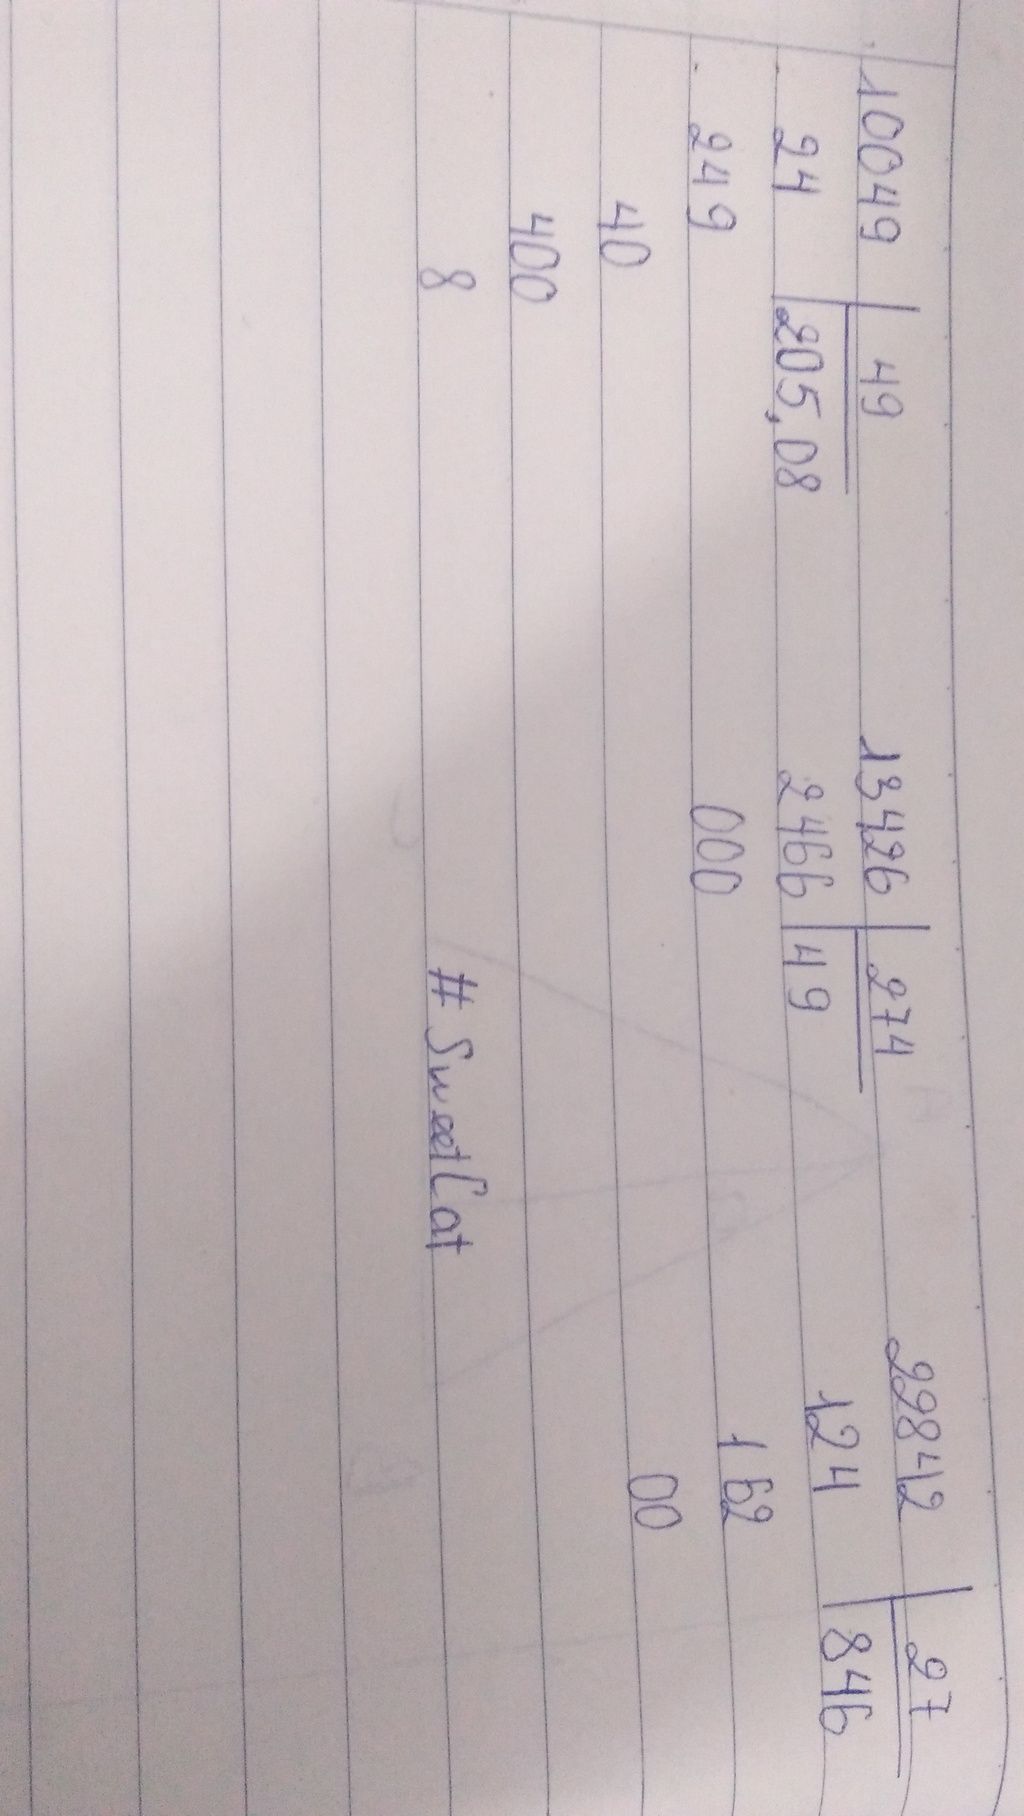 10049 | 49   13426 | 274   22842 | 27
24 | 205,08   2466 | 49   124 | 846
249   000   162
40   00
400
8   # SweetCat